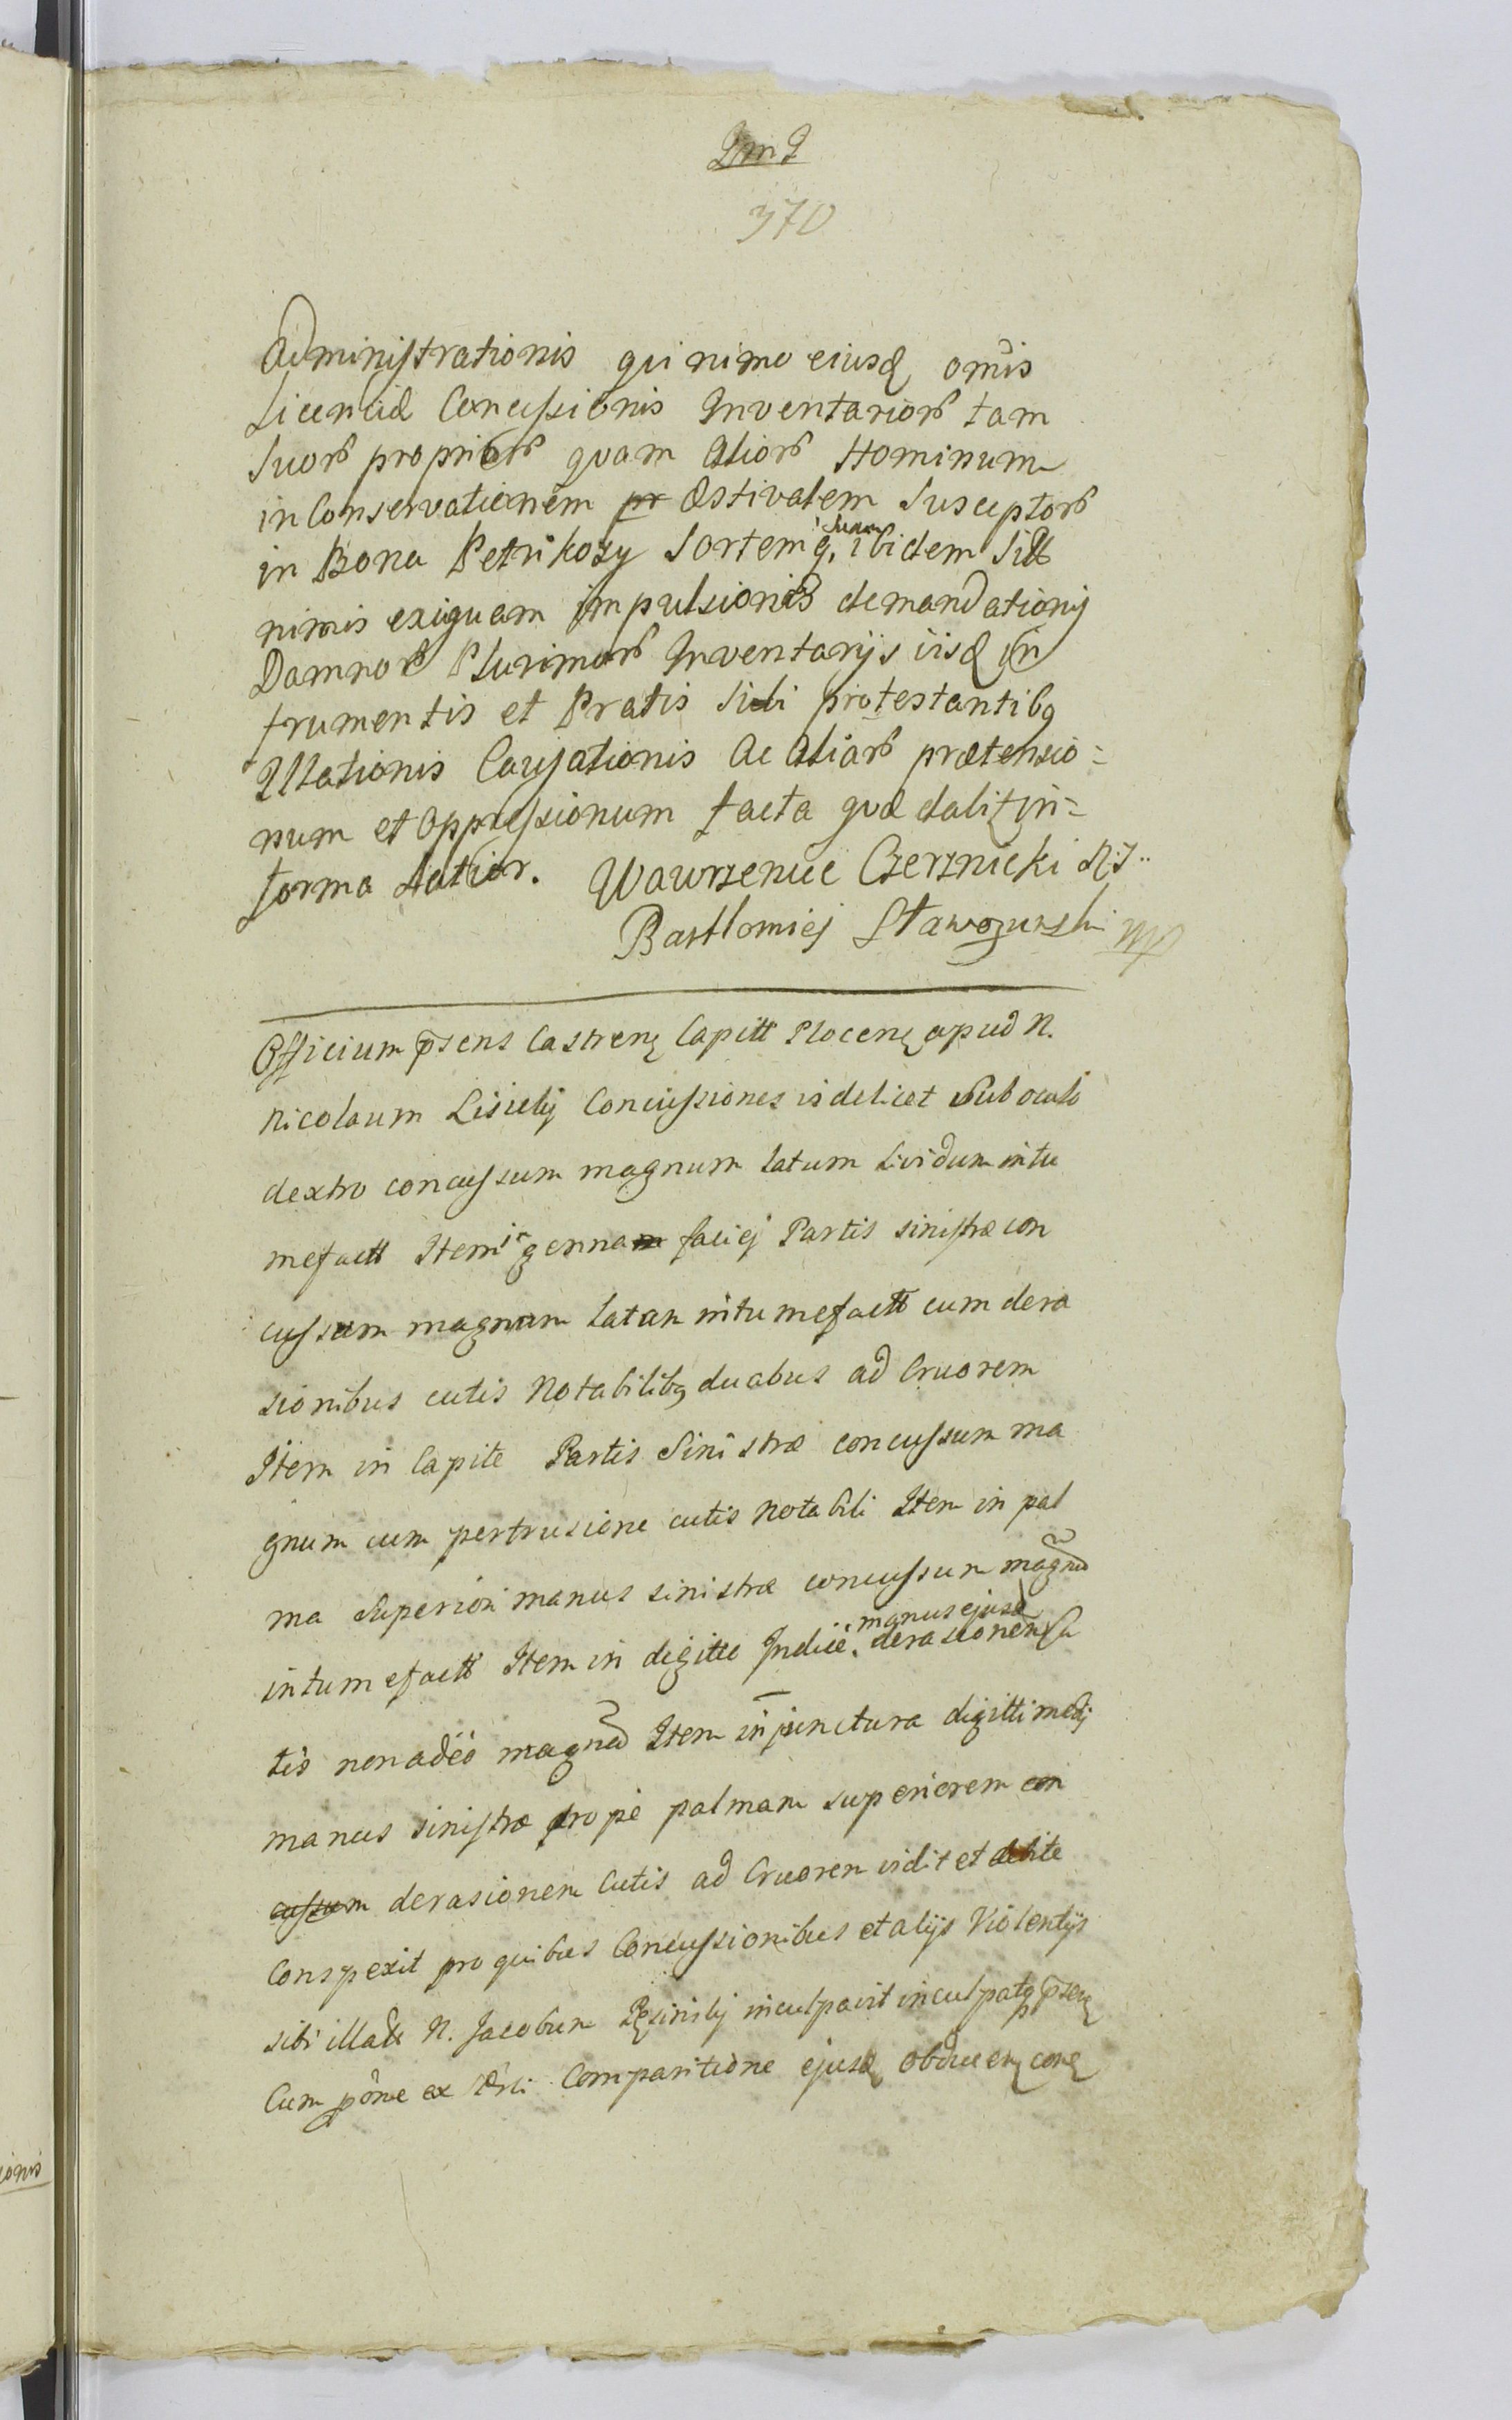 370
Administrationis qui nimo eiusd omis
Licentiæ Concessionis Inventarior tam
Suor proprior quam Alior Hominum
in Conservationem pr Æstivalem Susceptor
in Bona Petrikozy Sortemq suam ibidem Sitt
nimis exiguam impulsionis demandationis
Damnor Plurimor Inventarijs iisd in
frumentis et Pratis Sibi protestantibq
Illationis Causationis Ac Aliar prætensio=
num et Oppressionum facta quæ dabit in=
forma Latior. Wawrzeniec Czernicki
Bartlomiej mp
Officium psens Castren Capitt Plocen apud N.
Nicolaum Concussiones videlicet Sub oculo
dextro concussum magnum latum lividum intu
mefactt Item in genna faciej Partis sinistræ con
cussum magnum latam intumefactt cum dera
sionibus cutis Notabilibq duabus ad Cruorem
Item in Capite Partis Sinistræ concussum ma
gnum cum pertrusione cutis notabili Item in pal
ma Superiori manus sinistræ concussum magnũ
intumefactt Item in digitto Indice manus ejusd derasionem cu
tis non adeo magnã Item in junctura digitti medij
manus sinistræ prope palmam superiorem con
cussum derasionem Cutis ad Cruorem vidit et debite
Conspexit pro quibus Concussionibus et alijs Violentijs
sibi illatt N. Jacobum inculpavit inculpatq psen
Cum pone ex Comparitione ejusd